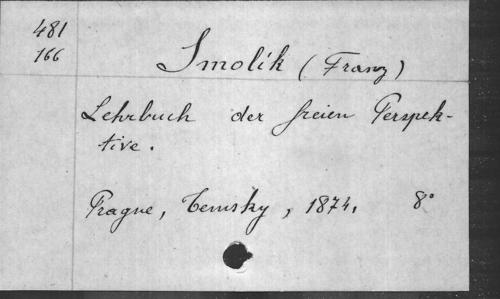 481
166
Smolík (Franz)
Lehrbuch der freien Perspek-
tive.
Prague, Temsky, 1874. 8°